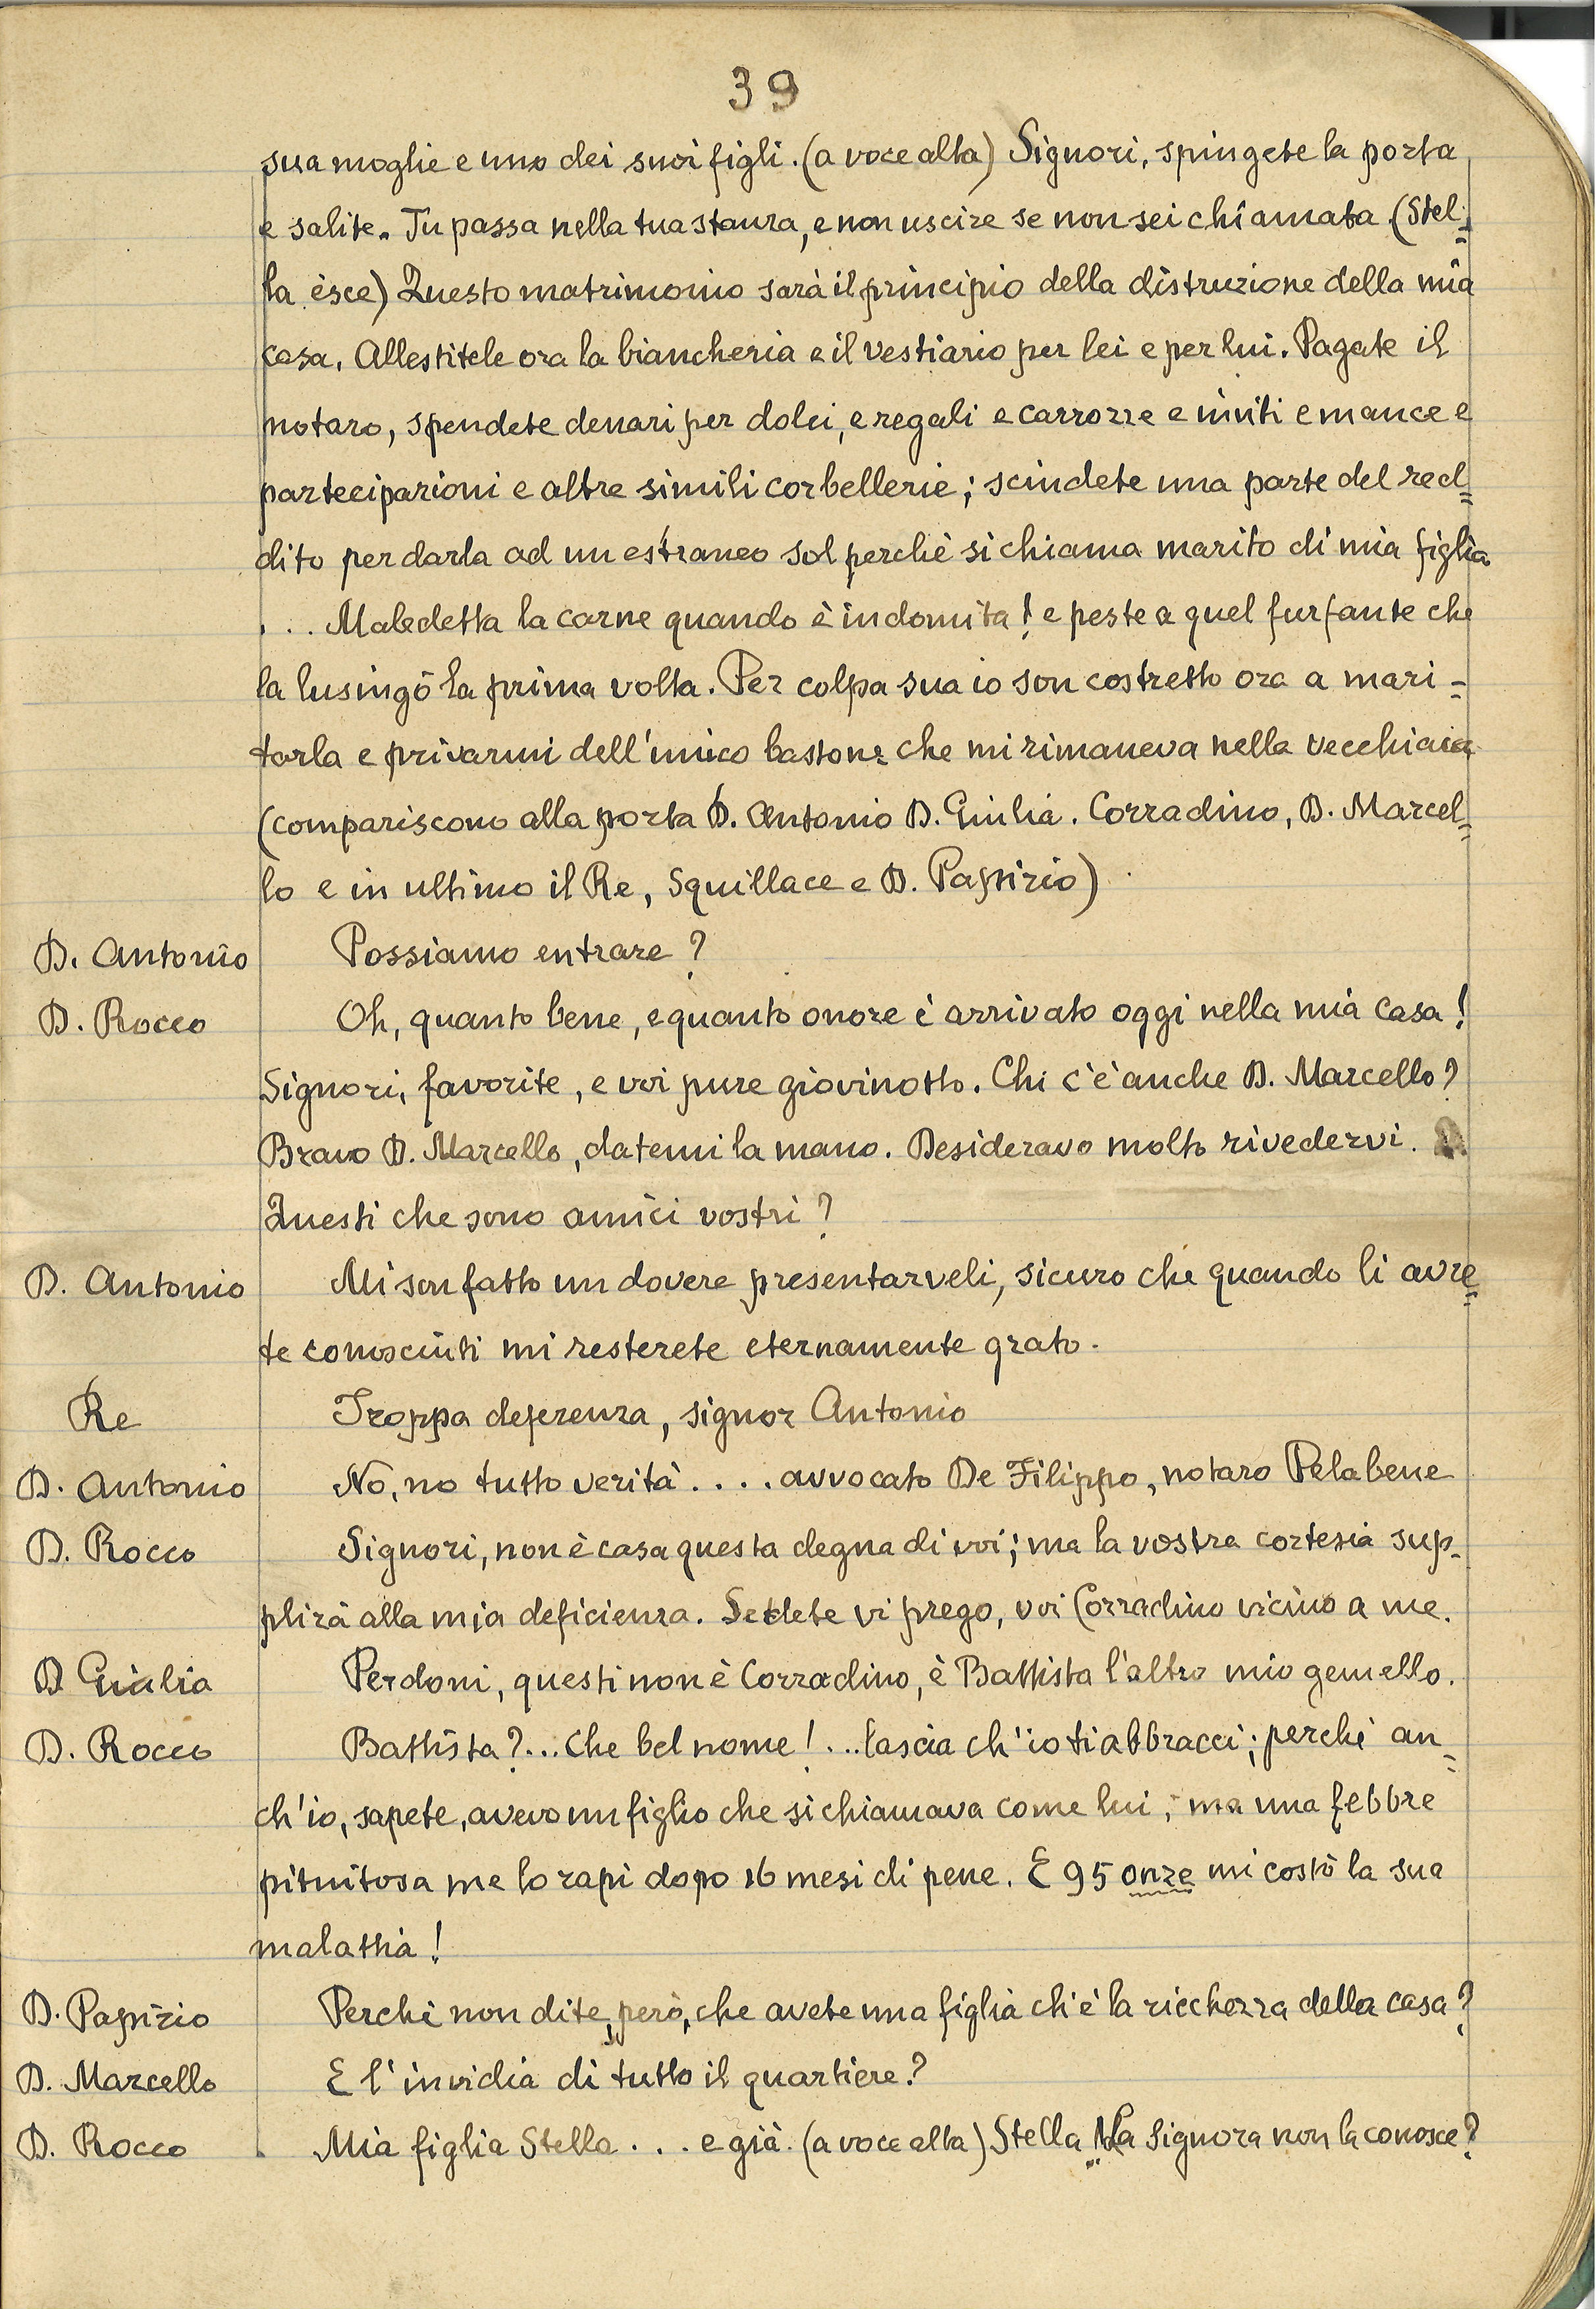 39
sua moglie e uno dei suoi figli. (a voce alta) Signori, spingete la porta
e salite. Tu passa nella tua stanza, e non uscire se non sei chiamata (Stel=
la esce) Questo matrimonio sarà il principio della distruzione della mia
casa. Allestitele ora la biancheria e il vestiario per lei e per lui. Pagate il
notaro, spendete denari per dolci, e regali e carrozze e inviti e mance e
partecipazioni e altre simili corbellerie; scindete una parte del red=
dito per darla ad un estraneo sol perchè si chiama marito di mia figlia
... Maledetta la carne quando è indomita! e peste a quel furfante che
la lusingò la prima volta. Per colpa sua io son costretto ora a mari=
tarla e privarmi dell'unico bastone che mi rimaneva nella vecchiaia
(compariscono alla porta D. Antonio D. Giulia. Corradino, D. Marcel=
lo e in ultimo il Re, Squillace e D. Papirio)
D. Antonio Possiamo entrare?
D. Rocco Oh, quanto bene, e quanto onore è arrivato oggi nella mia casa!
Signori, favorite, e voi pure giovinotto. Chi c'è anche D. Marcello?
Bravo D. Marcello, datemi la mano. Desideravo molto rivedervi.
Questi che sono amici vostri?
D. Antonio Mi son fatto un dovere presentarveli, sicuro che quando li avre=
te conosciuti mi resterete eternamente grato.
Re Troppa deferenza, signor Antonio
D. Antonio No, no tutto verità .... avvocato De Filippo, notaro Pelabene
D. Rocco Signori, non è casa questa degna di voi; ma la vostra cortesia sup-
plirà alla mia deficienza. Sedete vi prego, voi Corradino vicino a me.
D Giulia Perdoni, questi non è Corradino, è Battista l'altro mio gemello.
D. Rocco Battista?... Che bel nome! ... lascia ch'io ti abbracci; perchè an=
ch'io, sapete, avevo un figlio che si chiamava come lui; ma una febbre
pituitosa me lo rapì dopo 16 mesi di pene. E 95 onze mi costò la sua
malattia!
D. Papirio Perchè non dite, però, che avete una figlia ch'è la ricchezza della casa?
D. Marcello E l'invidia di tutto il quartiere?
D. Rocco Mia figlia Stella ... e già. (a voce alta) Stella La Signora non la conosce?